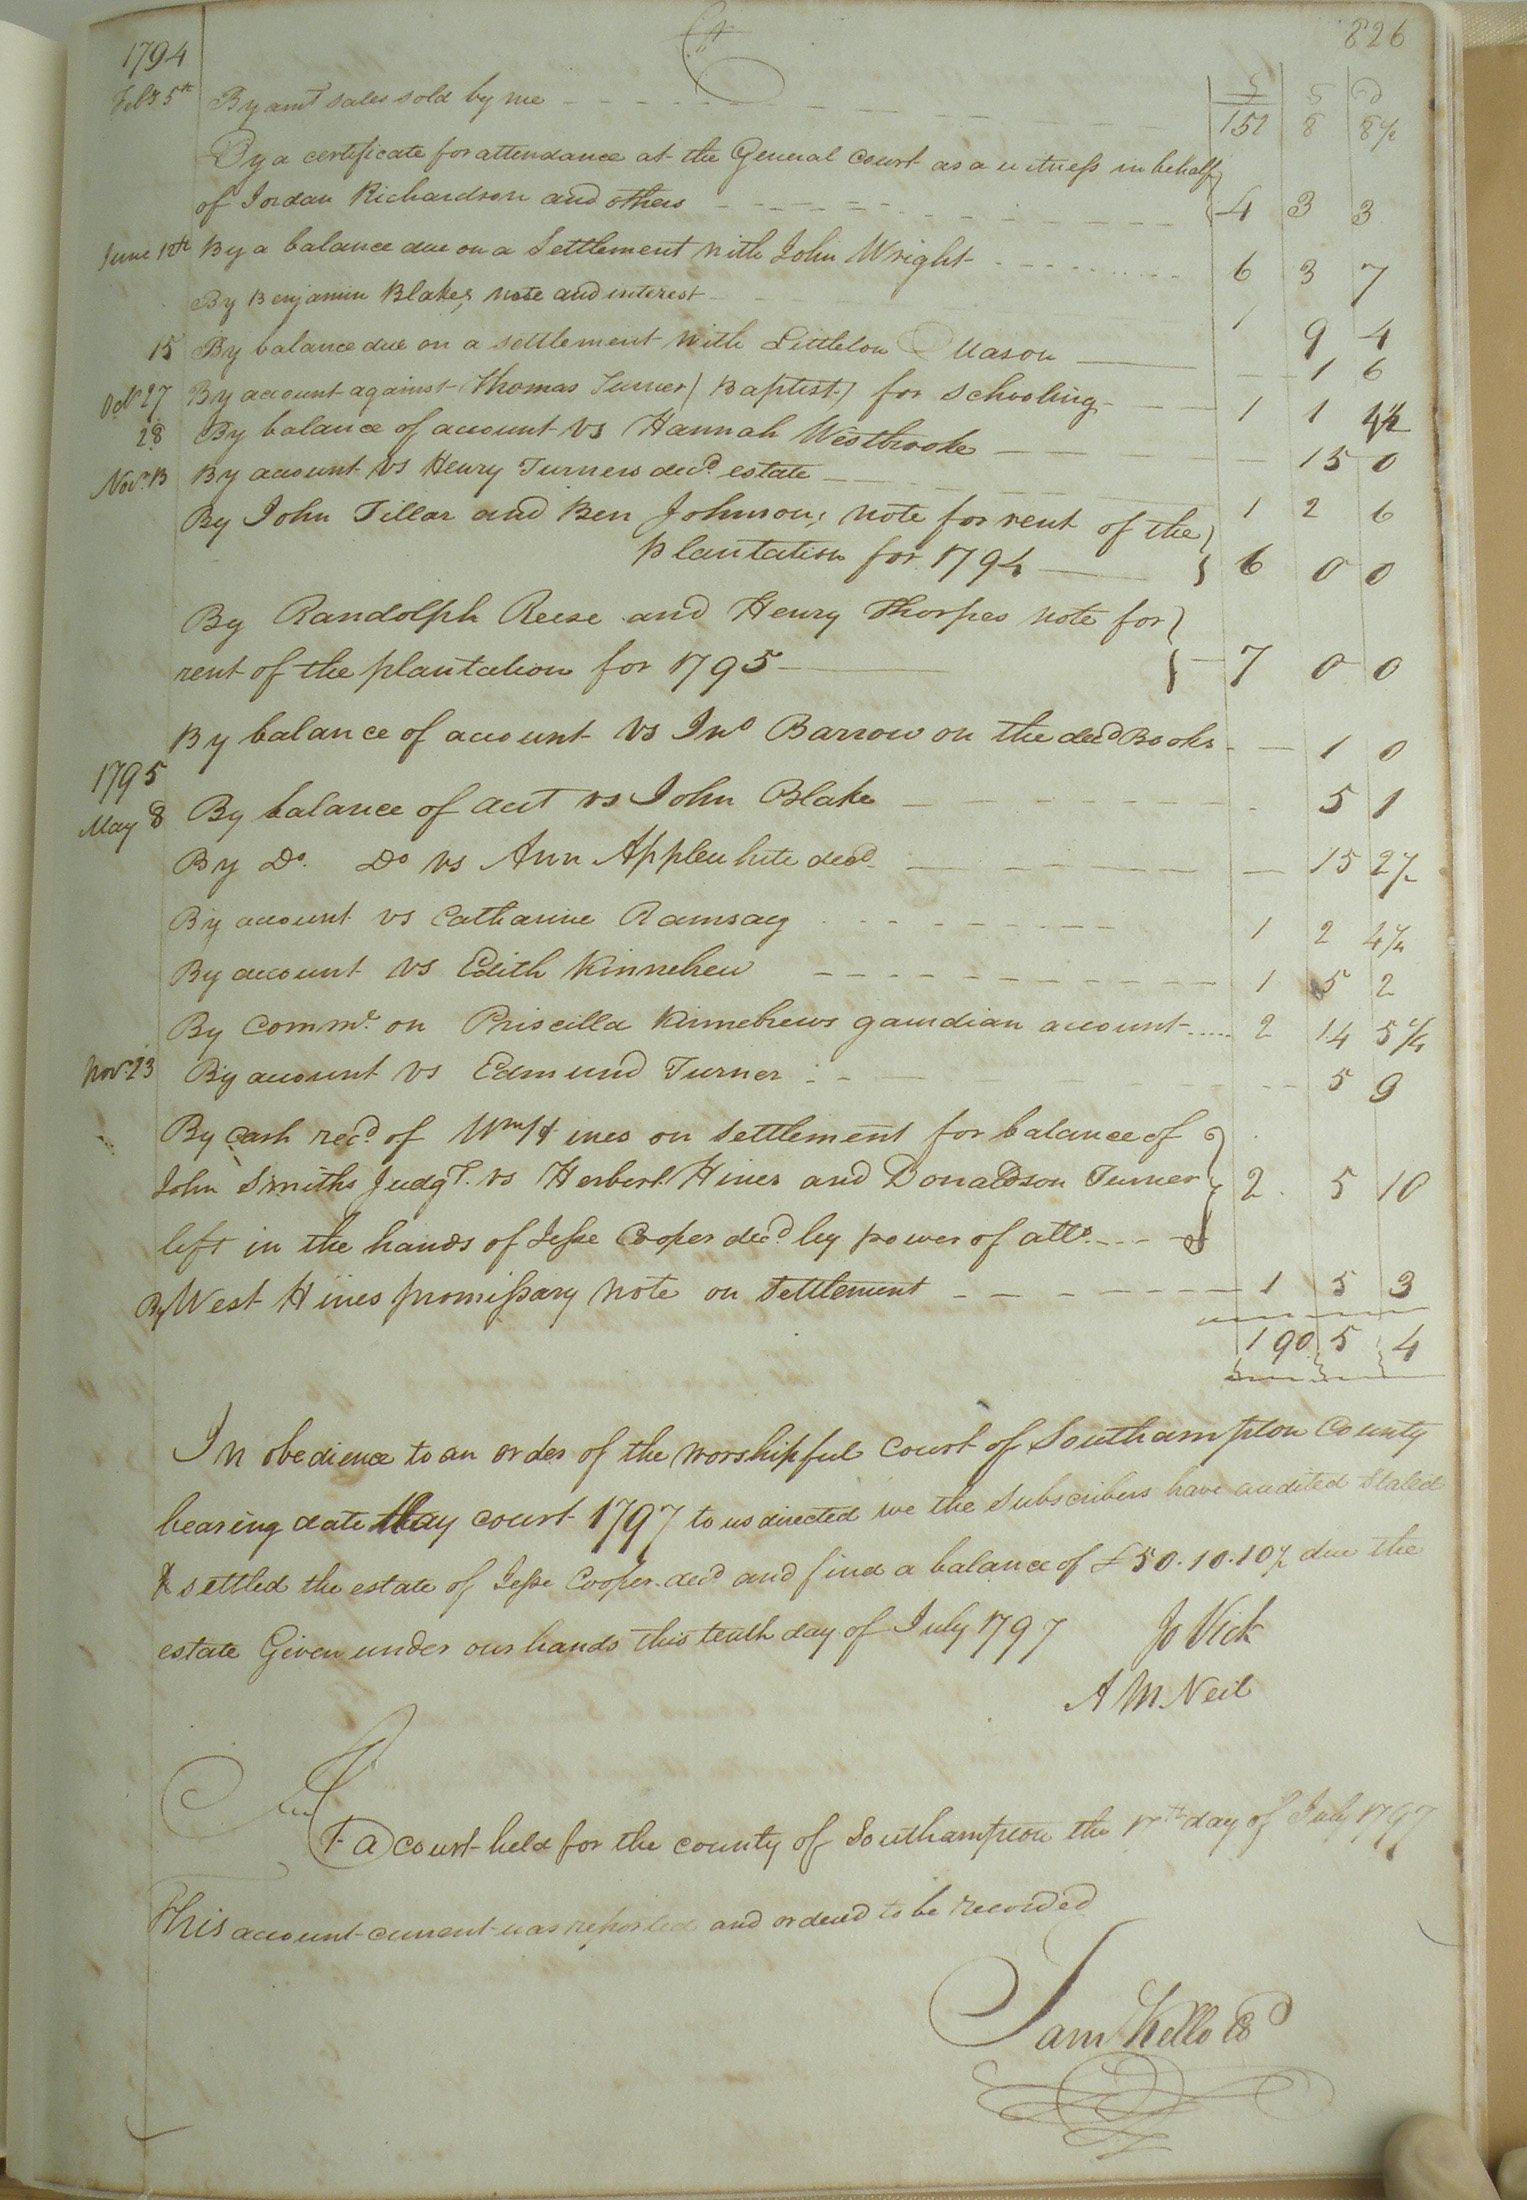 826
1794 Cr
£ S D
Feby 5th By amt sales sold by me 151 8 8½
By a certificate for attendance at the General Court as a witness in behalf
of Jordan Richardson and others 4 3 3
June 10th By a balance due on a Settlement with John Wright 6 3 7
By Benjamin Blakes note and interest 1 9 4
15 By balance due on a settlement with Littleton Mason 1 6
Octr 27 By account against Thomas Turner (Baptist) for schooling 1 1 4½
28 By balance of account vs Hannah Westbrooke 15 0
Novr. 13 By account vs Henry Turners decd estate 1 2 6
By John Tillar and Ben Johnsons note for rent of the
plantation for 1794 6 0 0
By Randolph Reese and Henry Thorpes note for
rent of the plantation for 1795 7 0 0
By balance of account vs Jno Barrow on the decd Books 1 0
1795
May 8 By balance of acct vs John Blake 5 1
By Do. Do vs Ann Applewhite decd 15 2½
By account vs Catharine Ramsay 1 2 4¼
By account vs Edith Kinnebrew 1 5 2
By Comms. on Priscilla Kinnebrews gaurdian account 2 14 5¼
Novr 23 By account vs Edmund Turner 5 9
By Cash recd of Wm Hines on settlement for balance of
John Smiths Judgt. vs Herbert Hines and Donaldson Turner 2 5 10
left in the hands of Jesse Cooper decd by power of atto.
By West Hines promissary note on settlement 1 5 3
190 5 4
In obedience to an order of the worshipful Court of Southampton County
bearing date May court 1797 to us directed we the subscribers have audited Stated
& settled the estate of Jesse Cooper decd and find a balance of £50.10.10½ due the
estate Given under our hands this tenth day of July 1797 Jo Vick
A McNeil
At a Court held for the county of Southampton the day of July 1797
This account current was reported and ordered to be recorded
Saml Kello